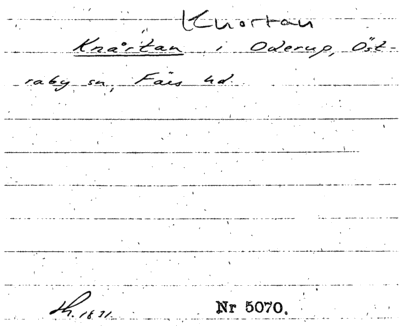 Knortan
Knårtan i Oderup, Öst-
raby sn, Färs hd.
Lh. 1831.
Nr 5070.